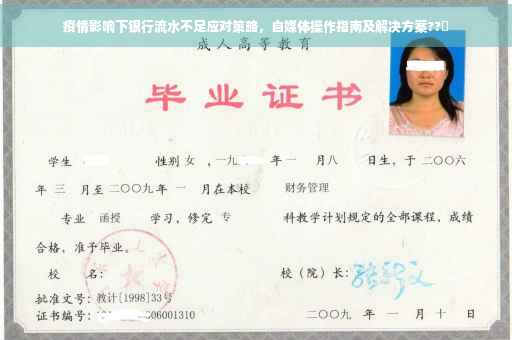 疫情影响下银行流水不足应对策略，自媒体操作指南及解决方案??
成人高等教育
毕业证书
学生 性别 女 ，一九 年 一 月八 日生，于 二〇〇六
年 三 月至 二〇〇九 年 一 月在本校 财务管理
专业 函授 学习，修完 专 科教学计划规定的全部课程，成绩
合格，准予毕业。
校 名： 校（院）长：
批准文号：教计[1998]33号
证书编号： 06001310 二〇〇九 年 一 月 十 日